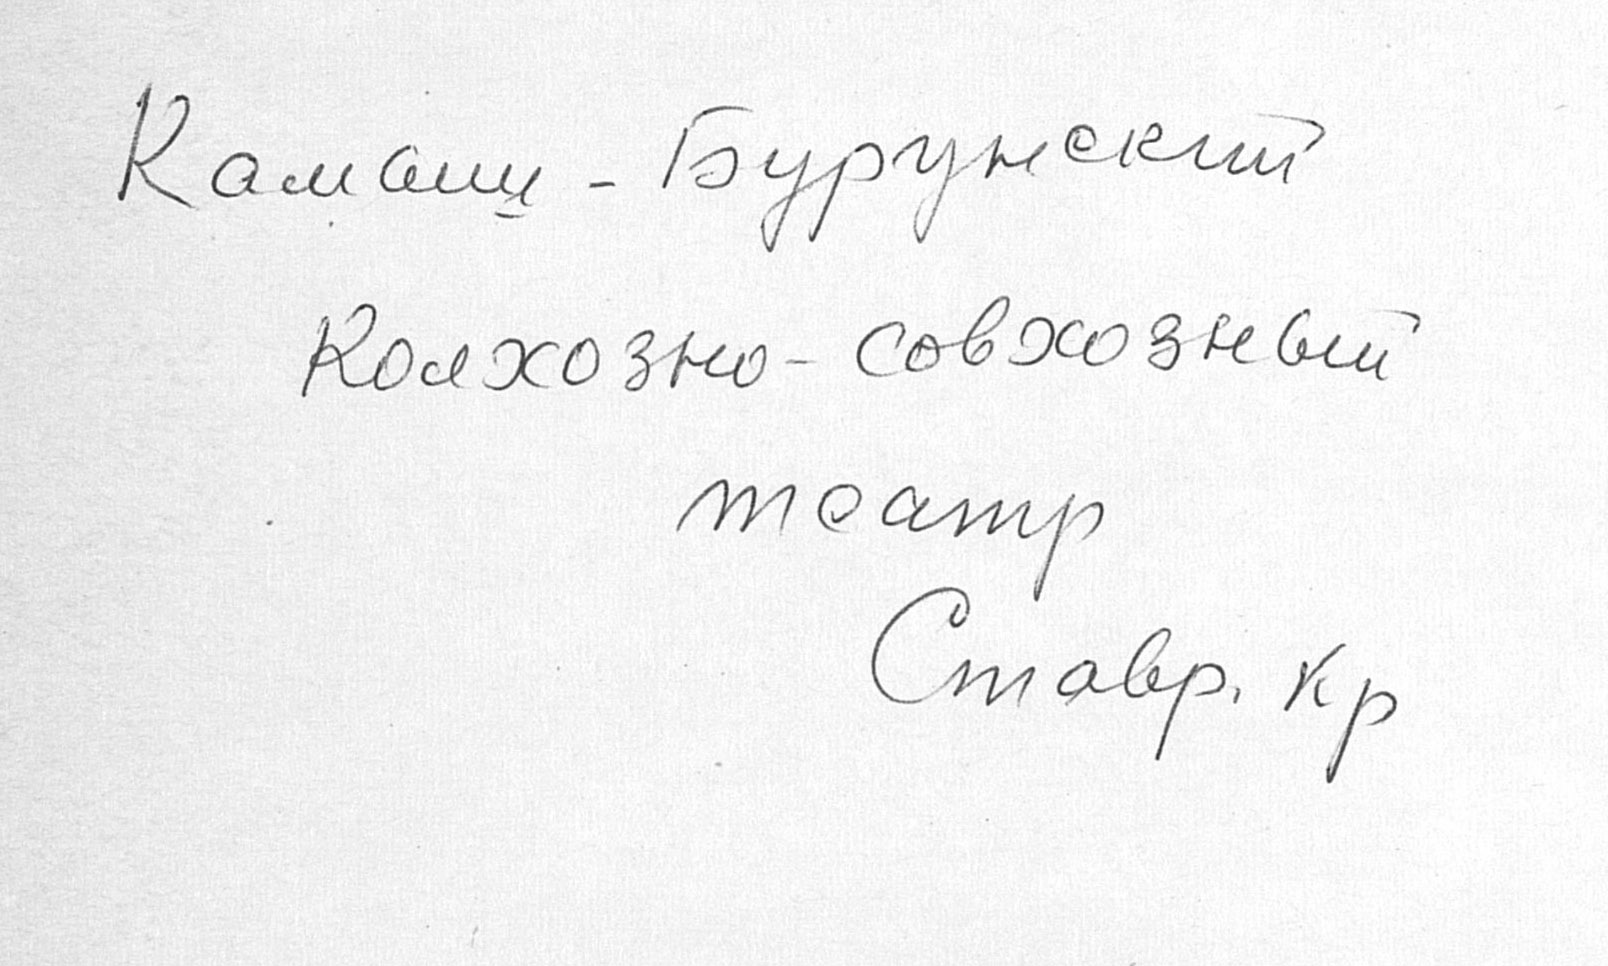 Камыш-Бурунский
Колхозно-совхозный
театр
Ставр. кр